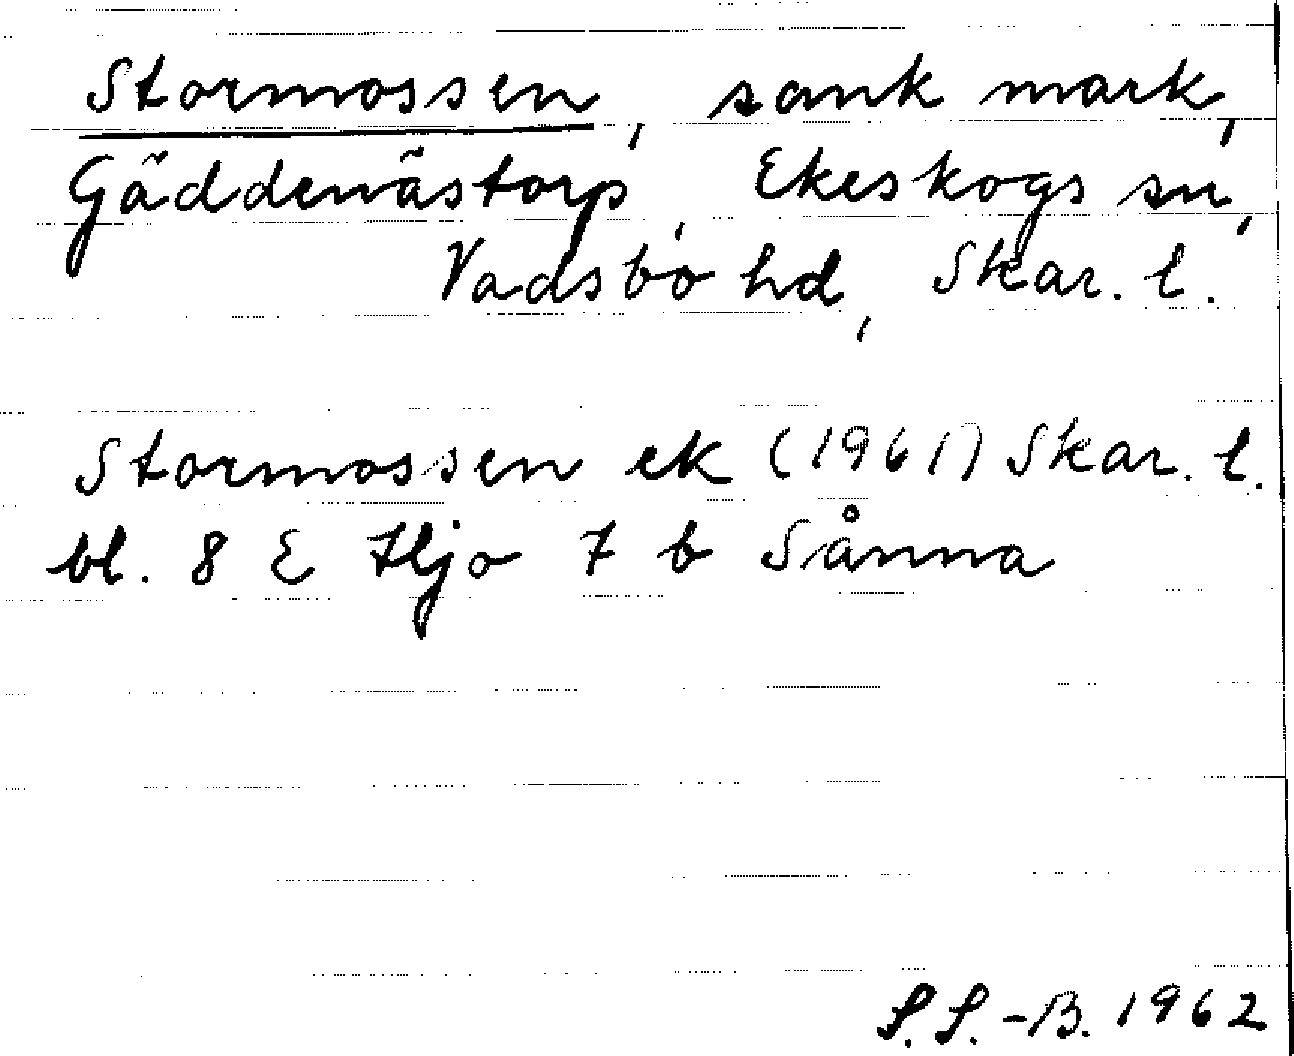 Stormossen, sank mark,
Gäddenästorp, Ekeskogs sn,
Vadsbo hd, Skar. l.
Stormossen ek (1961) Skar. l.
bl. 8 E Hjo 7 b Sånna
S.S.-B. 1962